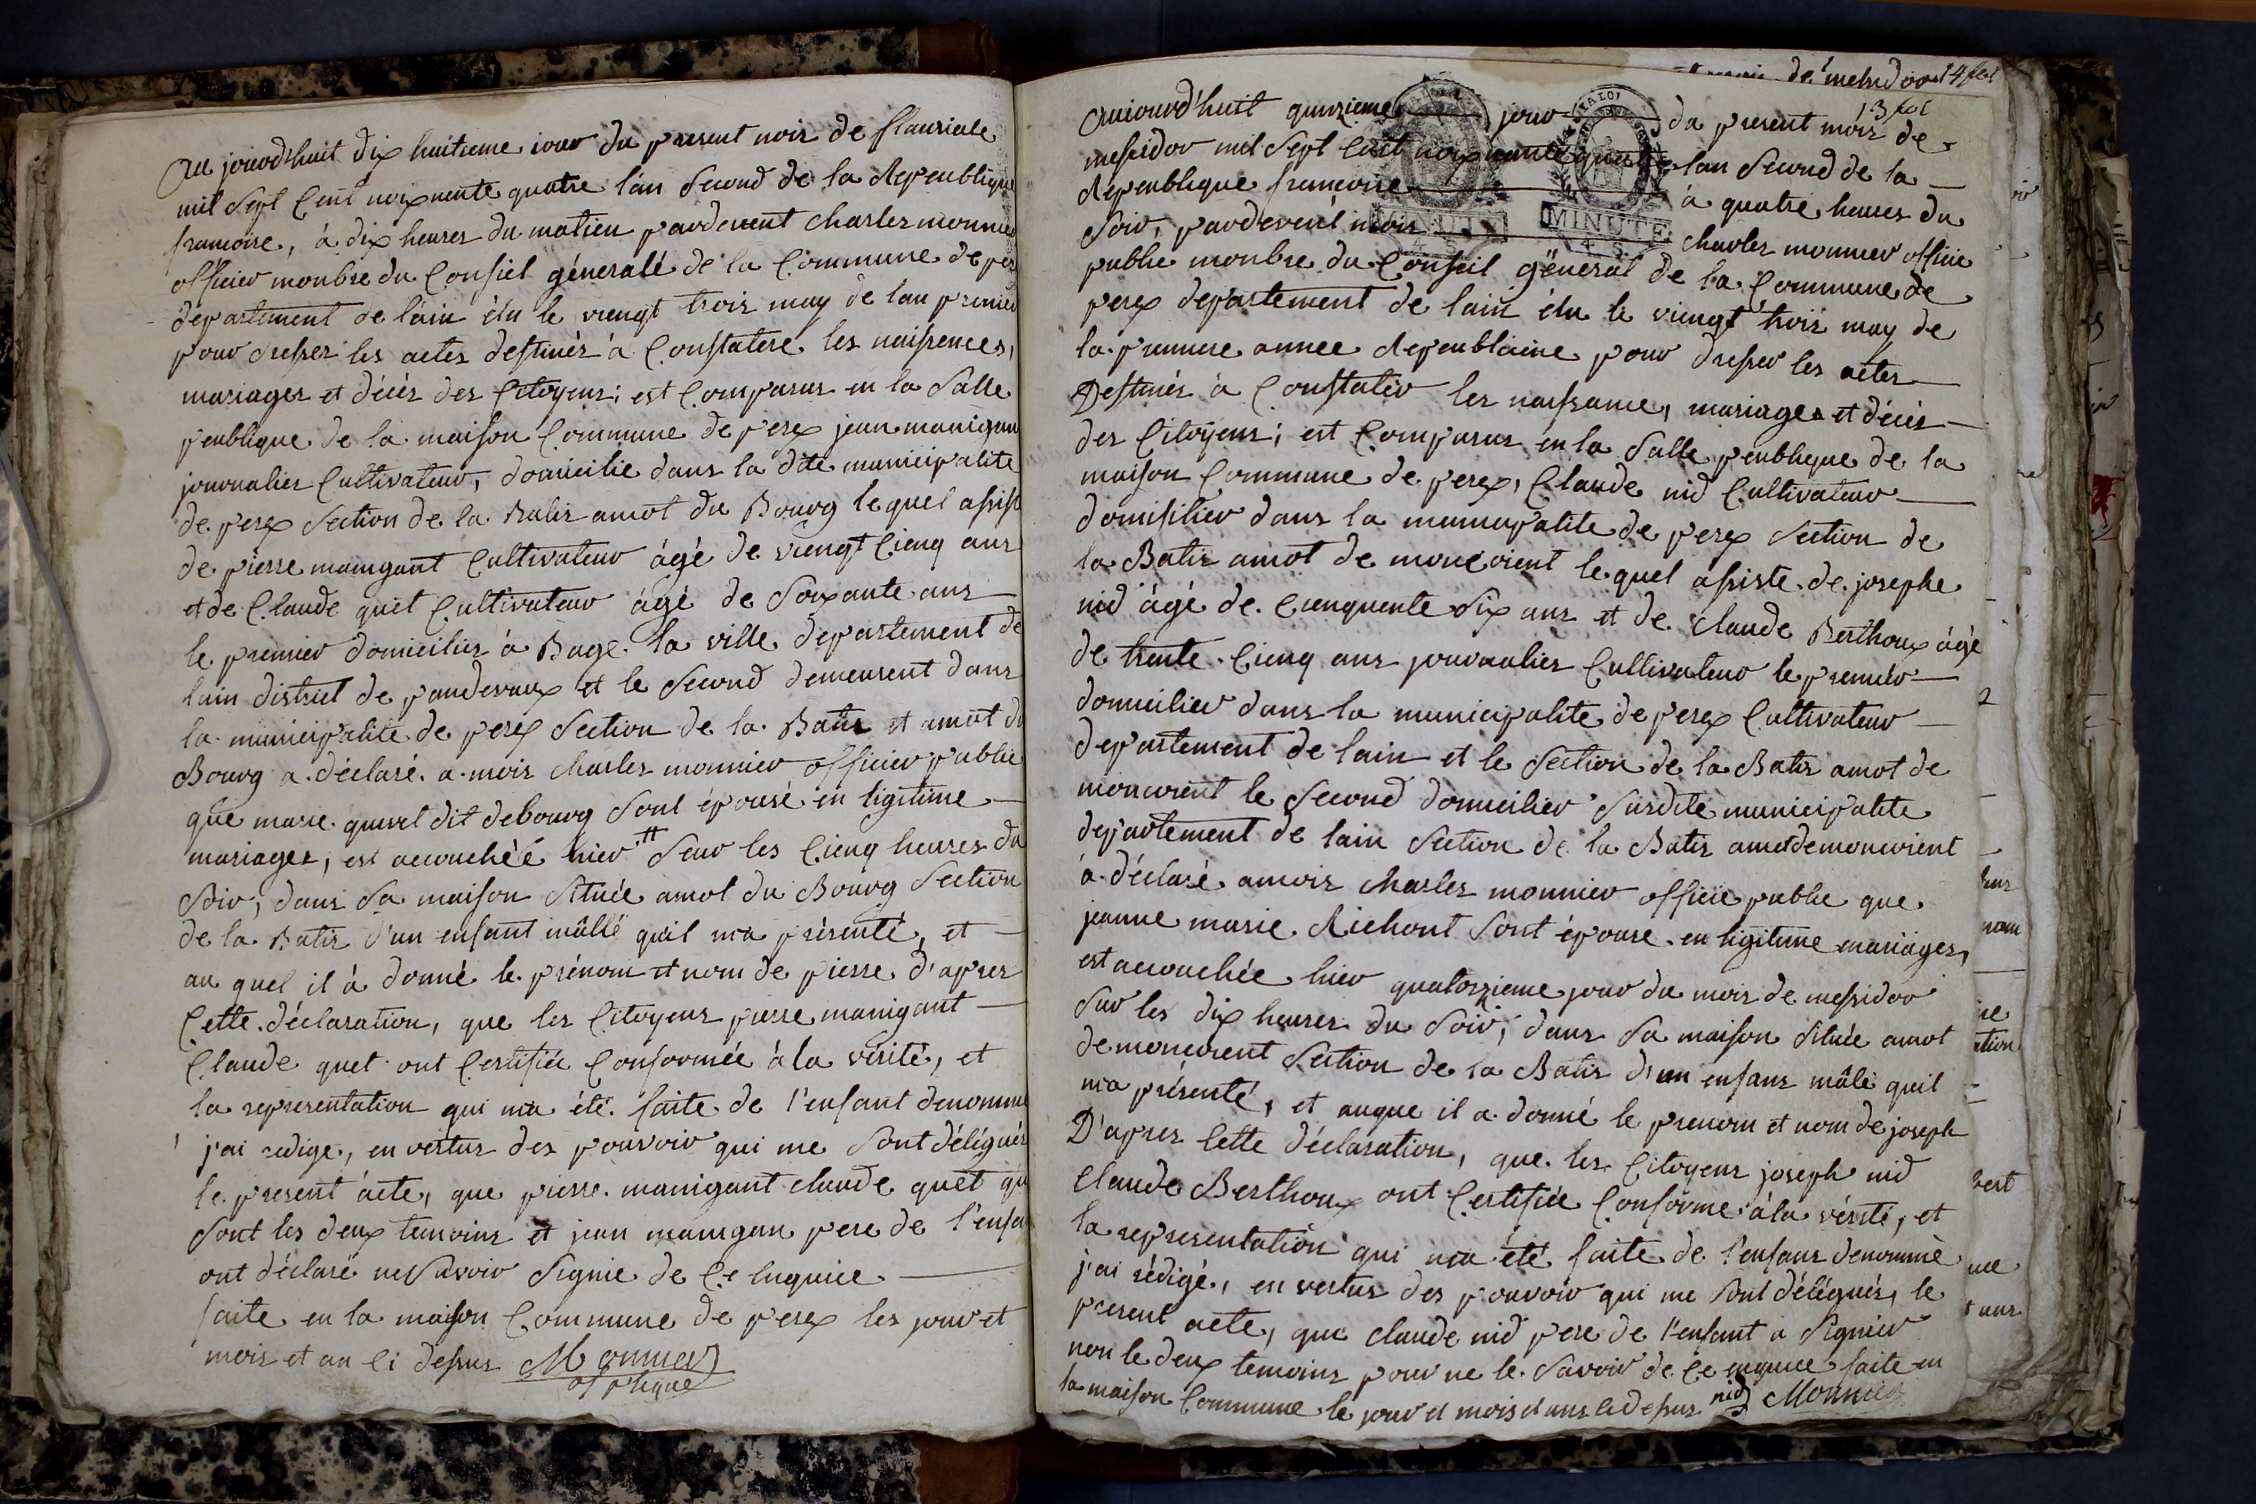 Au jourdhuit dix huitieme iour du present mois de flauriale
mil Sept Cent noixnente quatre l'an Second de la Repeublique
francoise, à dix heures du matien pardevent charles monnier
officier monbre du Consiel généralé de la Commune de perex
departement de l'ain élu le viengt trois may de lan premier
pour dresser les actes destinés à Constatere les naissences,
mariages et décés des Citoyens; est Comparus en la Salle
peublique de la maison Commune de perex jean manigan
journalier Cultivateur, domicilie dans la dite municipalite
de perex Section de la Batis amot du Bourg lequel assist
de pierre maingant Cultivateur âgé de viengt Cienq ans
et de Claude quet Cultivateur âgé de Soixante ans
le premier domicilier à Bage la ville departement de
lain district de pondevaux et le Second demeurent dans
la municipalite de perex Section de la Batis et amot du
Bourg a déclaré a mois charles monnier officier publie
que marie quivel dit debourg Sont épousé en ligitime
mariages, est acouchéé hier # Seur les Cienq heures du
Soir, dans Sa maison Située amot du Bourg Section
de la Batis d'un enfant mâllé quil ma présenté, et
au quel il à donné le prénom et nom de pierre d'apres
Cette déclaration, que les Citoyens pierre manigant
Claude quet ont Certifiée Conformée à la vérité, et
la representation qui ma été faite de l'enfant denommé
j'ai redige, en vertus des pouvoir qui me Sont délégués
le present acte, que pierre manigant claude quet qui
Sont les deux temoins et jean manigan pere de l'enfan
ont déclaré ne Savoir Signie de Ce enquice
faite en la maison Commune de perex les jour et
mois et an Ci dessus Monnier
of plique
de messidor 14 feul
13 feul
Auiourd'huit quinzieme jour du present mois de
messidor mil Sept Cent noixnante quatre lan Second de la
Repeublique françoise à quatre heures du
Soir, pardevent mois charles monnier officie
publie monbre du Conseil géneral de la Commune de
perex departement de lain élu le viengt trois may de
la premiere annee Repeublicaine pour dresser les actes
Destinés à Constatér les naissance, mariages et décés
des Citoyens; est Comparus en la Salle peublique de la
maison Commune de perex, Claude nid Cultivateur
domisilier dans la municipalite de perex Section de
la Batis amot de moncorient lequel assiste de josephe
nid âgé de Cienquente Six ans et de claude Berthoux âgé
de trente Cienq ans jouvnalier Cultivateur le premier
domicilier dans la municipalite de perex Cultivateur
departement de lain et le Section de la Batis amot de
moncorient le Second domicilier Susdite municipalite
departement de lain Section de la Batis amotdemoncorient
à déclaré amois charles monnier officie publie que
jeanne marie Richont Sont épouse en ligitime mariages,
est acouchée hier quatorzieme jour du mois de messidor
Sur les dix heures du Soir, dans Sa maison Située amot
demoncorient Section de la Batis d'un enfans mâle quil
ma présenté, et auque il a donné le prenom et nom de joseph
D'apres Cette déclaration, que les Citoyens joseph nid
Claude Berthoux ont Certifiée Conforme à la vérité, et
la representation qui ma été faite de l'enfans denommé
j'ai rédigé, en vertus des pouvoir qui me Sont délégués, le
present acte, que claude nid pere de l'enfant a Signier
non le deux temoins pour ne le Savoir de Ce enquice faite en
la maison Commune le jour et mois et ans Cidessus nid Monnier